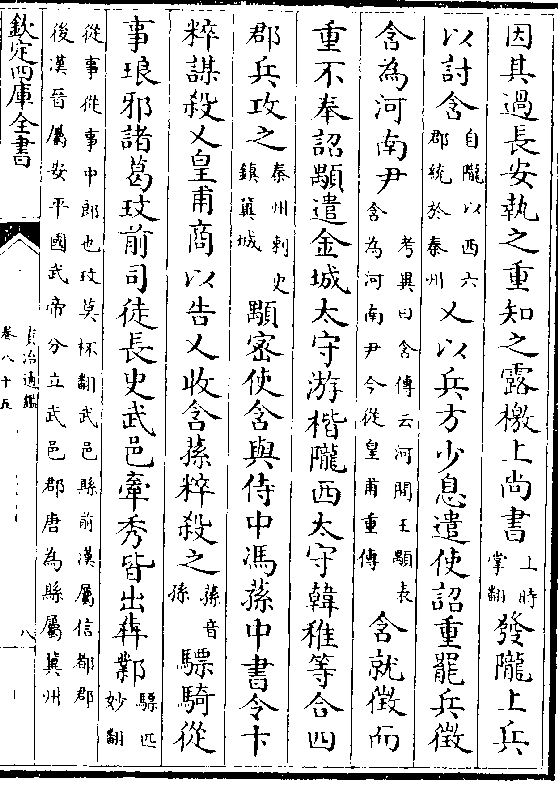 因其過長安執之重知之露檄上尚書上時掌翻發隴上兵
以討含自隴以西六郡統於秦州乂以兵方少息遣使詔重罷兵徵
含為河南尹考異曰含傳云河間王顒表含為河南尹今從皇甫重傳含就徵而
重不奉詔顒遣金城太守游楷隴西太守韓稚等合四
郡兵攻之秦州刺史鎮冀城顒密使含與侍中馮蓀中書令卞
粹謀殺乂皇甫商以告乂收含蓀粹殺之蓀音孫驃騎從
事琅邪諸葛玫前司徒長史武邑牽秀皆出犇鄴驃匹妙翻
從事從事中郎也玫莫杯翻武邑縣前漢屬信都郡
後漢晉屬安平國武帝分立武邑郡唐為縣屬冀州
欽定四庫全書
資治通鑑
卷八十五
八